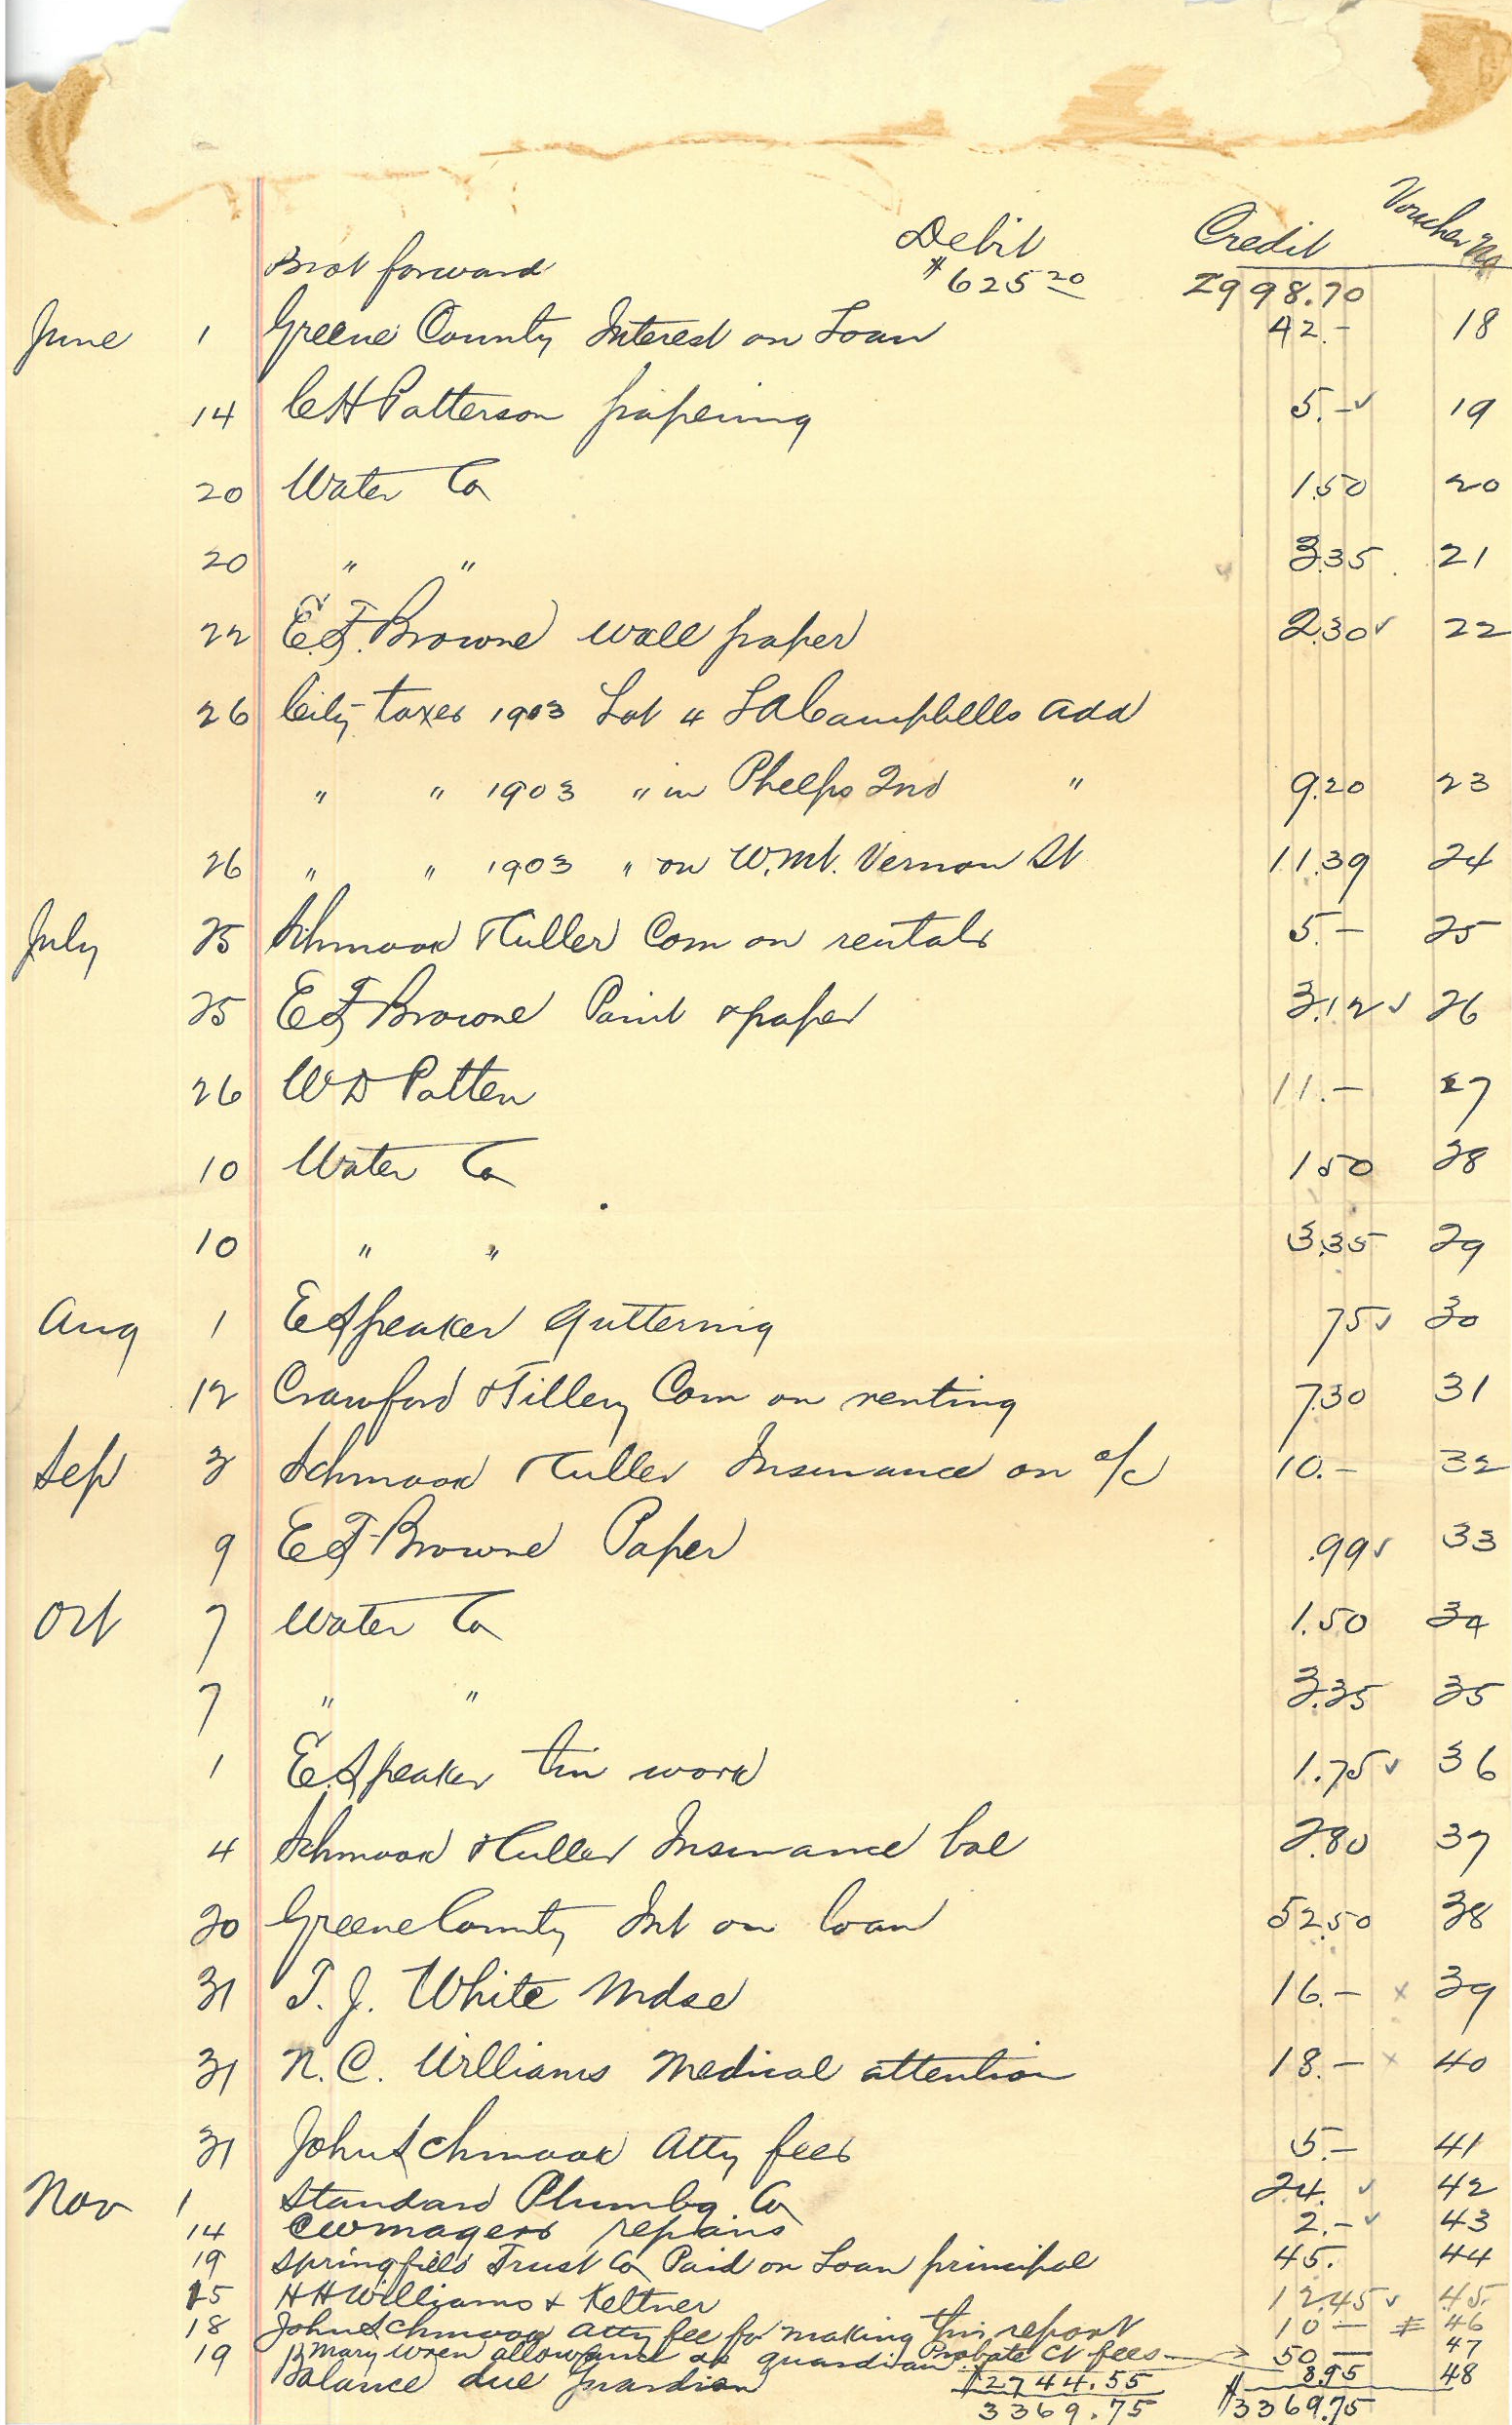 Debit Credit Voucher No
Brot forward $625 20 2998.70
June 1 Greene County Interest on Loan 42.- 18
14 CH Patterson papering 5.-✓ 19
20 Water Co 1.50 20
20 " " 3.35 21
22 E.F. Browne wall paper 2.30✓ 22
26 City taxes 1903 Lot 4 LA Campbells add
" " 1903 " in Phelps 2nd " 9.20 23
26 " " 1903 " on W. Mt. Vernon St 11.39 24
July 25 Schmook & Fuller Com on rentals 5.- 25
25 E F Browne Paint & paper 3.12✓ 26
26 W D Patten 11.- 27
10 Water Co 1.50 28
10 " " 3.35 29
Aug 1 E Speaker guttering 75✓ 30
12 Crawford & Tillery Com on renting 7.30 31
Sep 3 Schmook Fuller Insurance on a/c 10.- 32
9 E F Browne Paper .99✓ 33
Oct 7 Water Co 1.50 34
7 " " 3.35 35
1 E. Speaker tin work 1.75✓ 36
4 Schmook & Fuller Insurance bal 2.80 37
20 Greene County Int on loan 52.50 38
31 T. J. White Mdse 16.- x 39
31 N. C. Williams Medical attention 18.- x 40
31 John Schmook Atty fees 5.- 41
Nov 1 Standard Plumbg Co 24. ✓ 42
14 CW Magers repairs 2.-✓ 43
19 Springfield Trust Co Paid on Loan principal 45. 44
15 H H Williams & Keltner 12.45✓ 45
18 John Schmook atty fee for making this report 10 - 46
19 Mary Wren allowance as guardian 50 — 47
Probate Ct fees 8.95 48
Balance due Guardian $2744.55
3369.75 $3369.75